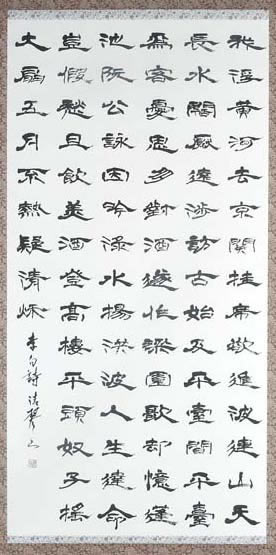 我浮黄河去京關挂席欲進波連山天
長水闊厭遠涉訪古始及平臺間平臺
爲客憂思多對酒遂作梁園歌却憶蓬
池阮公詠因吟淥水揚洪波人生達命
豈暇愁且飲美酒登高樓平頭奴子搖
大扇五月不熱疑清秋
李白詩